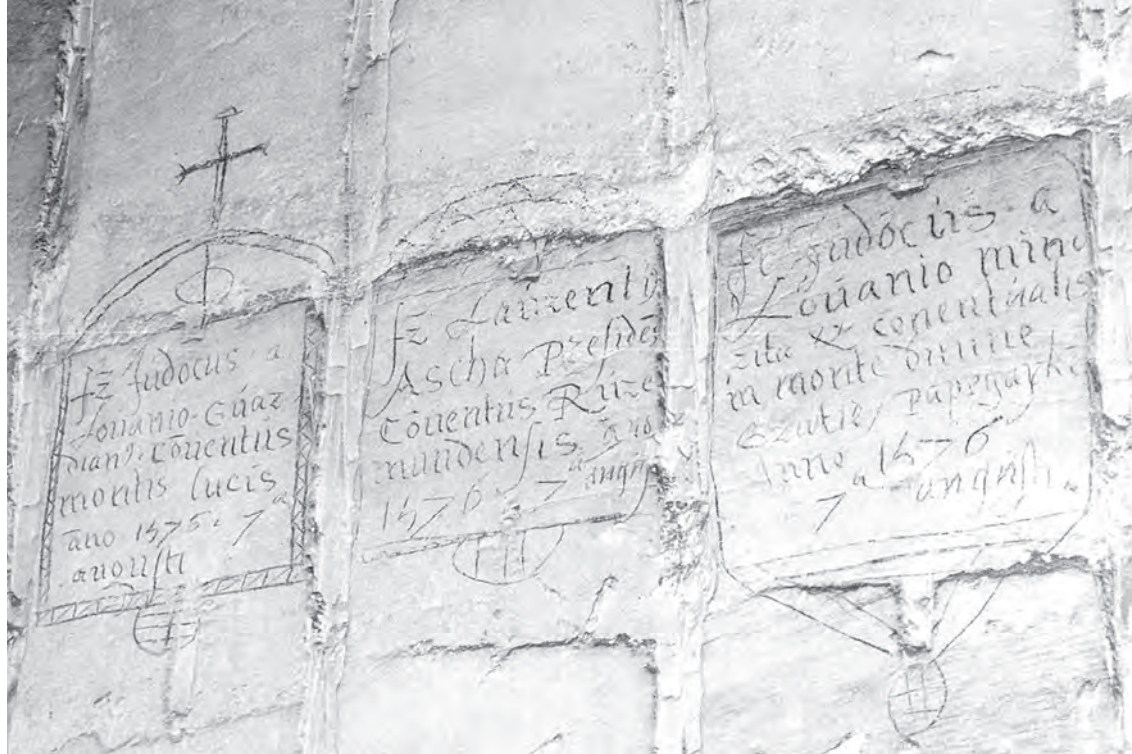 fr Judocus · a
Louanio · Guar
dian⁹ · Cōuentus
montis lucis
āno 1575 · 7ᵃ
augusti
fr Laurenti⁹
Ascha Presidēs
Cōuentus Rure
mundensis āno
1576 · 7ᵃ augusti
fr Judocus · a
Louanio mino
rita & conentualis
in monte diuine
gratie
Anno 1576
7ᵃ augusti